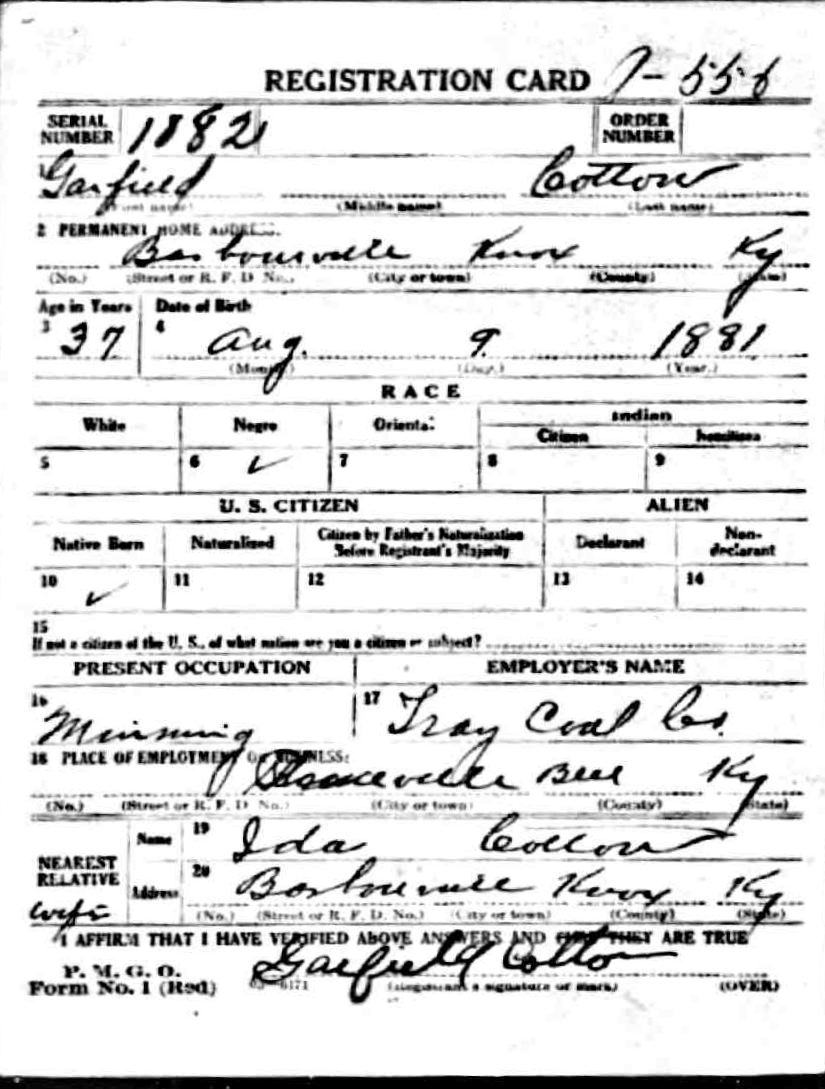 REGISTRATION CARD
SERIAL NUMBER 1882 ORDER NUMBER
1 Garfield Cotton
(First name) (Middle name) (Last name)
2 PERMANENT HOME ADDRESS:
Barbourville Knox Ky
(No.) (Street or R. F. D. No.) (City or town) (County) (State)
Age in Years Date of Birth
3 37 4 Aug. 9. 1881
(Month.) (Day.) (Year.)
RACE
White Negro Oriental Indian
Citizen Noncitizen
5 6 ✓ 7 8 9
U. S. CITIZEN ALIEN
Native Born Naturalized Citizen by Father's Naturalization Before Registrant's Majority Declarant Non-declarant
10 ✓ 11 12 13 14
15
If not a citizen of the U. S., of what nation are you a citizen or subject?
PRESENT OCCUPATION EMPLOYER'S NAME
16 Minning 17 Coal Co.
18 PLACE OF EMPLOYMENT OR BUSINESS:
Bell Ky
(No.) (Street or R. F. D. No.) (City or town) (County) (State)
NEAREST RELATIVE Name 19 Ida Cotton
wife Address 20 Barbourville Knox Ky
(No.) (Street or R. F. D. No.) (City or town) (County) (State)
I AFFIRM THAT I HAVE VERIFIED ABOVE ANSWERS AND THAT THEY ARE TRUE
P. M. G. O.
Form No. 1 (Red) 03-6171 Garfield Cotton
(Registrant's signature or mark) (OVER)